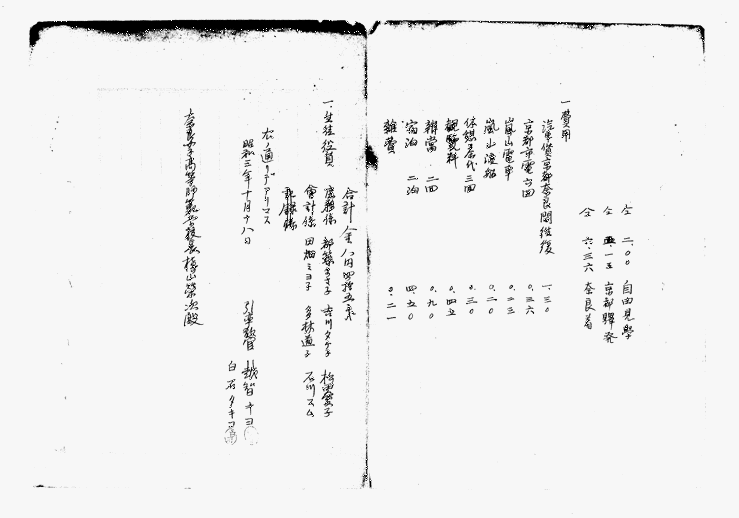 仝 二.〇〇 自由見學
仝 五.一五 京都驛発
仝 六.三六 奈良着
一費用
汽車賃京都奈良間往復 一.三〇
京都市電六回 〇.三六
嵐山電車 〇.二三
嵐山渡船 〇.二〇
休憩茶代三回 〇.三〇
観覧料 〇.四五
辨當 二回 〇.九〇
宿泊 二泊 四.五〇
雜費 〇.二一
合計 金八円四拾五銭
一.生徒役員
庶務係 都築 吉川タケ子 松田愛子
會計係 田畑ミヨ子 多林道子 石川スム
記録係
右ノ通リデアリマス
昭和三年十月十八日
引率教官 越智キヨ
白石タキ
奈良女子高等師範学校長 槇山榮次殿